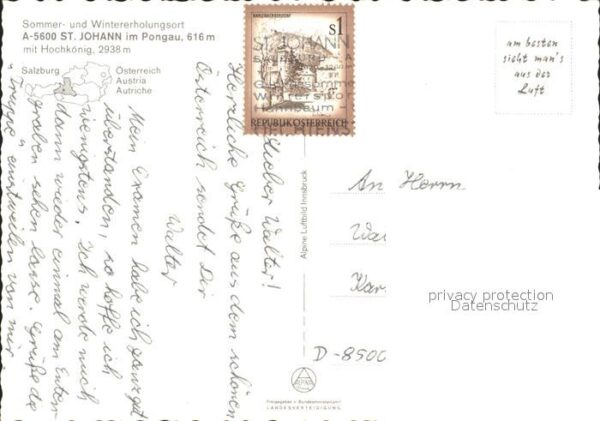 Sommer- und Wintererholungsort
A-5600 ST. JOHANN im Pongau, 616 m
mit Hochkönig, 2938 m
Salzburg
Österreich
Austria
Autriche
s1
REPUBLIK ÖSTERREICH
ST. JOHANN
am besten
sieht man's
aus der
Luft
Lieber Walter!
Herzliche Grüße aus dem schönen
Österreich sendet Dir
Walter
Mein Examen habe ich ganz gut
überstanden, so hoffe ich
wenigstens. Ich werde mich
dann wieder einmal am Enten-
graben sehen lasse. Grüße die
"Truppe" einstweilen von mir.
Alpine Luftbild Innsbruck
An Herrn
Wa
Kar
D-8500
privacy protection
Datenschutz
LANDESVERTEIDIGUNG